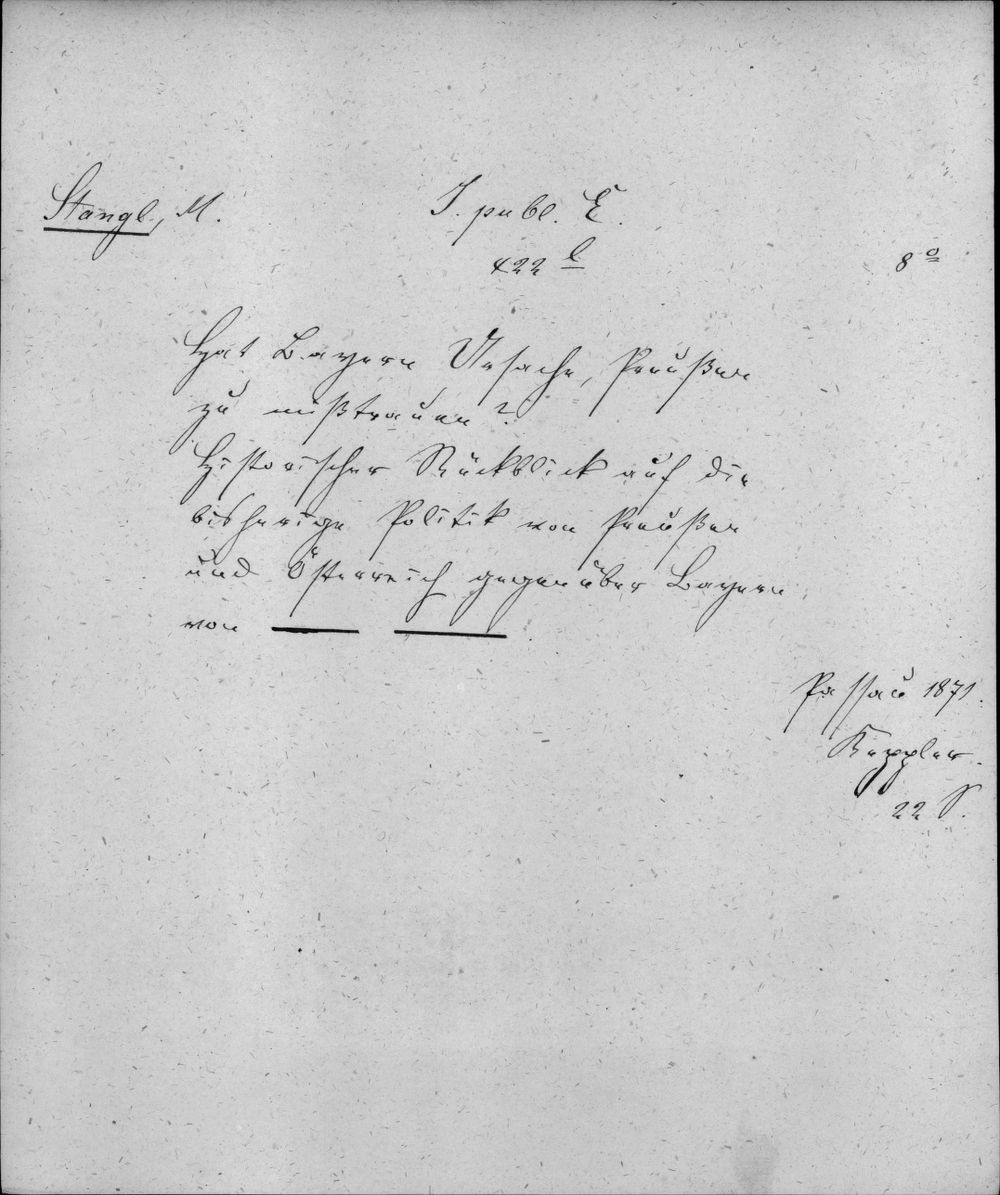 Stangl, M.
J. publ. E.
422 l
8o
Hat Bayern Ursache, Preußen
zu mißtrauen?
Historischer Rückblick auf die
bisherige Politik von Preußen
und Österreich gegenüber Bayern
von
Passau 1871.
Keppler.
22 S.